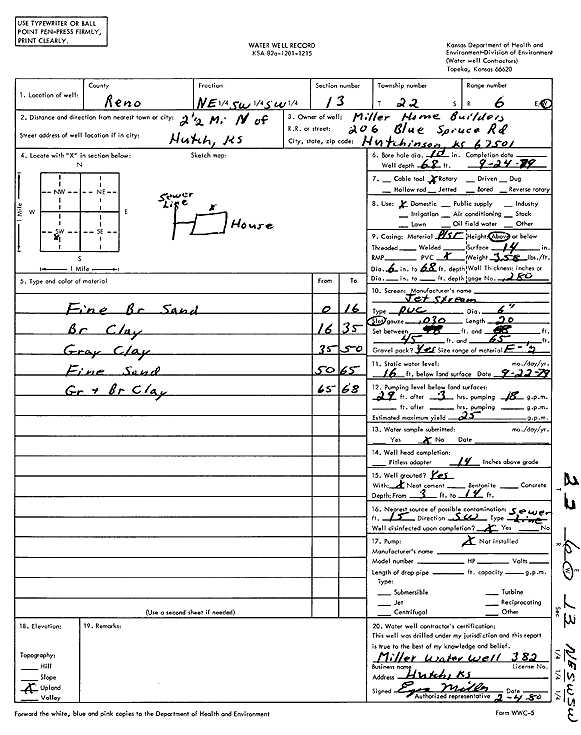 USE TYPEWRITER OR BALL
POINT PEN-PRESS FIRMLY,
PRINT CLEARLY.
WATER WELL RECORD
KSA 82a-1201-1215
Kansas Department of Health and
Environment-Division of Environment
(Water well Contractors)
Topeka, Kansas 66620
1. Location of well:
County
Reno
Fraction
NE 1/4 SW 1/4 SW 1/4
Section number
13
Township number
T 22 S
Range number
R 6 E/W
2. Distance and direction from nearest town or city: 2 1/2 Mi N of
Street address of well location if in city: Hutch, Ks
3. Owner of well: Miller Home Builders
R.R. or street: 206 Blue Spruce Rd
City, state, zip code: Hutchinson Ks 67501
4. Locate with "X" in section below:
Sketch map:
N
NW NE
W E
SW SE
X
S
1 Mile
1 Mile
Sewer
Line
House
6. Bore hole dia. 10 in. Completion date
Well depth 68 ft. 9-24-79
7. Cable tool X Rotary Driven Dug
Hollow rod Jetted Bored Reverse rotary
8. Use: X Domestic Public supply Industry
Irrigation Air conditioning Stock
Lawn Oil field water Other
9. Casing: Material Height: Above or below
Threaded Welded Surface 14 in.
RMP PVC X Weight 3.58 lbs./ft.
Dia. 6 in. to 68 ft. depth Wall Thickness: inches or
Dia. in. to ft. depth gage No. .280
5. Type and color of material From To
Fine Br Sand 0 16
Br Clay 16 35
Gray Clay 35 50
Fine Sand 50 65
Gr + Br Clay 65 68
(Use a second sheet if needed)
10. Screen: Manufacturer's name
Jet Stream
Type PVC Dia. 6"
Slot/gauze .030 Length 20
Set between ft. and ft.
45 ft. and 65 ft.
Gravel pack? Yes Size range of material
11. Static water level: mo./day/yr.
16 ft. below land surface Date 9-22-79
12. Pumping level below land surfaces:
29 ft. after 3 hrs. pumping 18 g.p.m.
ft. after hrs. pumping g.p.m.
Estimated maximum yield 25 g.p.m.
13. Water sample submitted: mo./day/yr.
Yes X No Date
14. Well head completion:
Pitless adapter 14 Inches above grade
15. Well grouted? Yes
With: X Neat cement Bentonite Concrete
Depth: From 3 ft. to 14 ft.
16. Nearest source of possible contamination: Sewer
ft. 15 Direction SW Type Line
Well disinfected upon completion? X Yes No
17. Pump: X Not installed
Manufacturer's name
Model number HP Volts
Length of drop pipe ft. capacity g.p.m.
Type:
Submersible Turbine
Jet Reciprocating
Centrifugal Other
18. Elevation:
Topography:
Hill
Slope
X Upland
Valley
19. Remarks:
20. Water well contractor's certification:
This well was drilled under my jurisdiction and this report
is true to the best of my knowledge and belief.
Miller Water Well 382
Business name License No.
Address Hutch, Ks
Signed Date 2-4-80
Authorized representative
Forward the white, blue and pink copies to the Department of Health and Environment
Form WWC-5
T 22
R 6 E W
Sec 13
1/4 1/4 1/4 NE SW SW